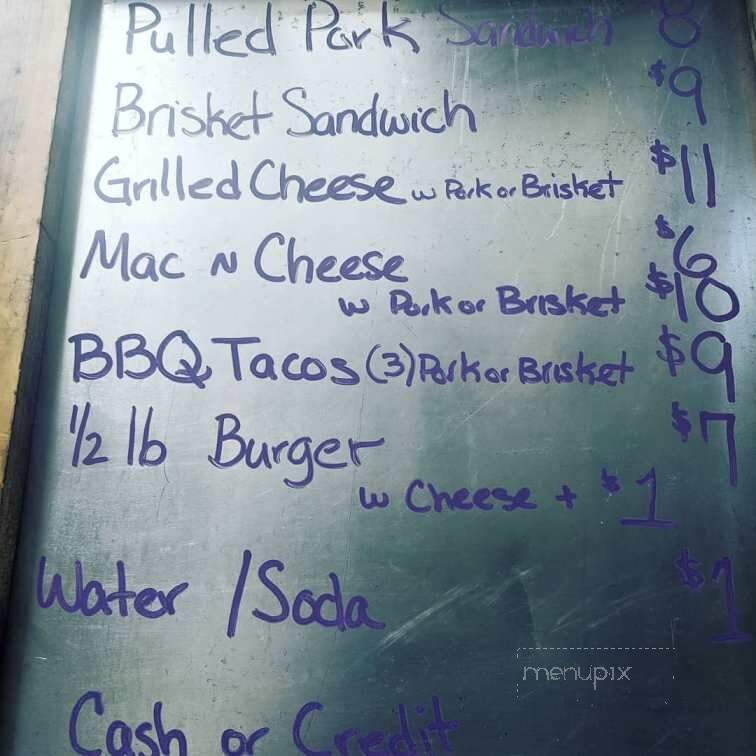 Pulled Pork Sandwich 8
Brisket Sandwich $9
Grilled Cheese w Pork or Brisket $11
Mac N Cheese $6
w Pork or Brisket $10
BBQ Tacos (3) Pork or Brisket $9
1/2 lb Burger $7
w Cheese + $1
Water / Soda $1
menupix
Cash or Credit